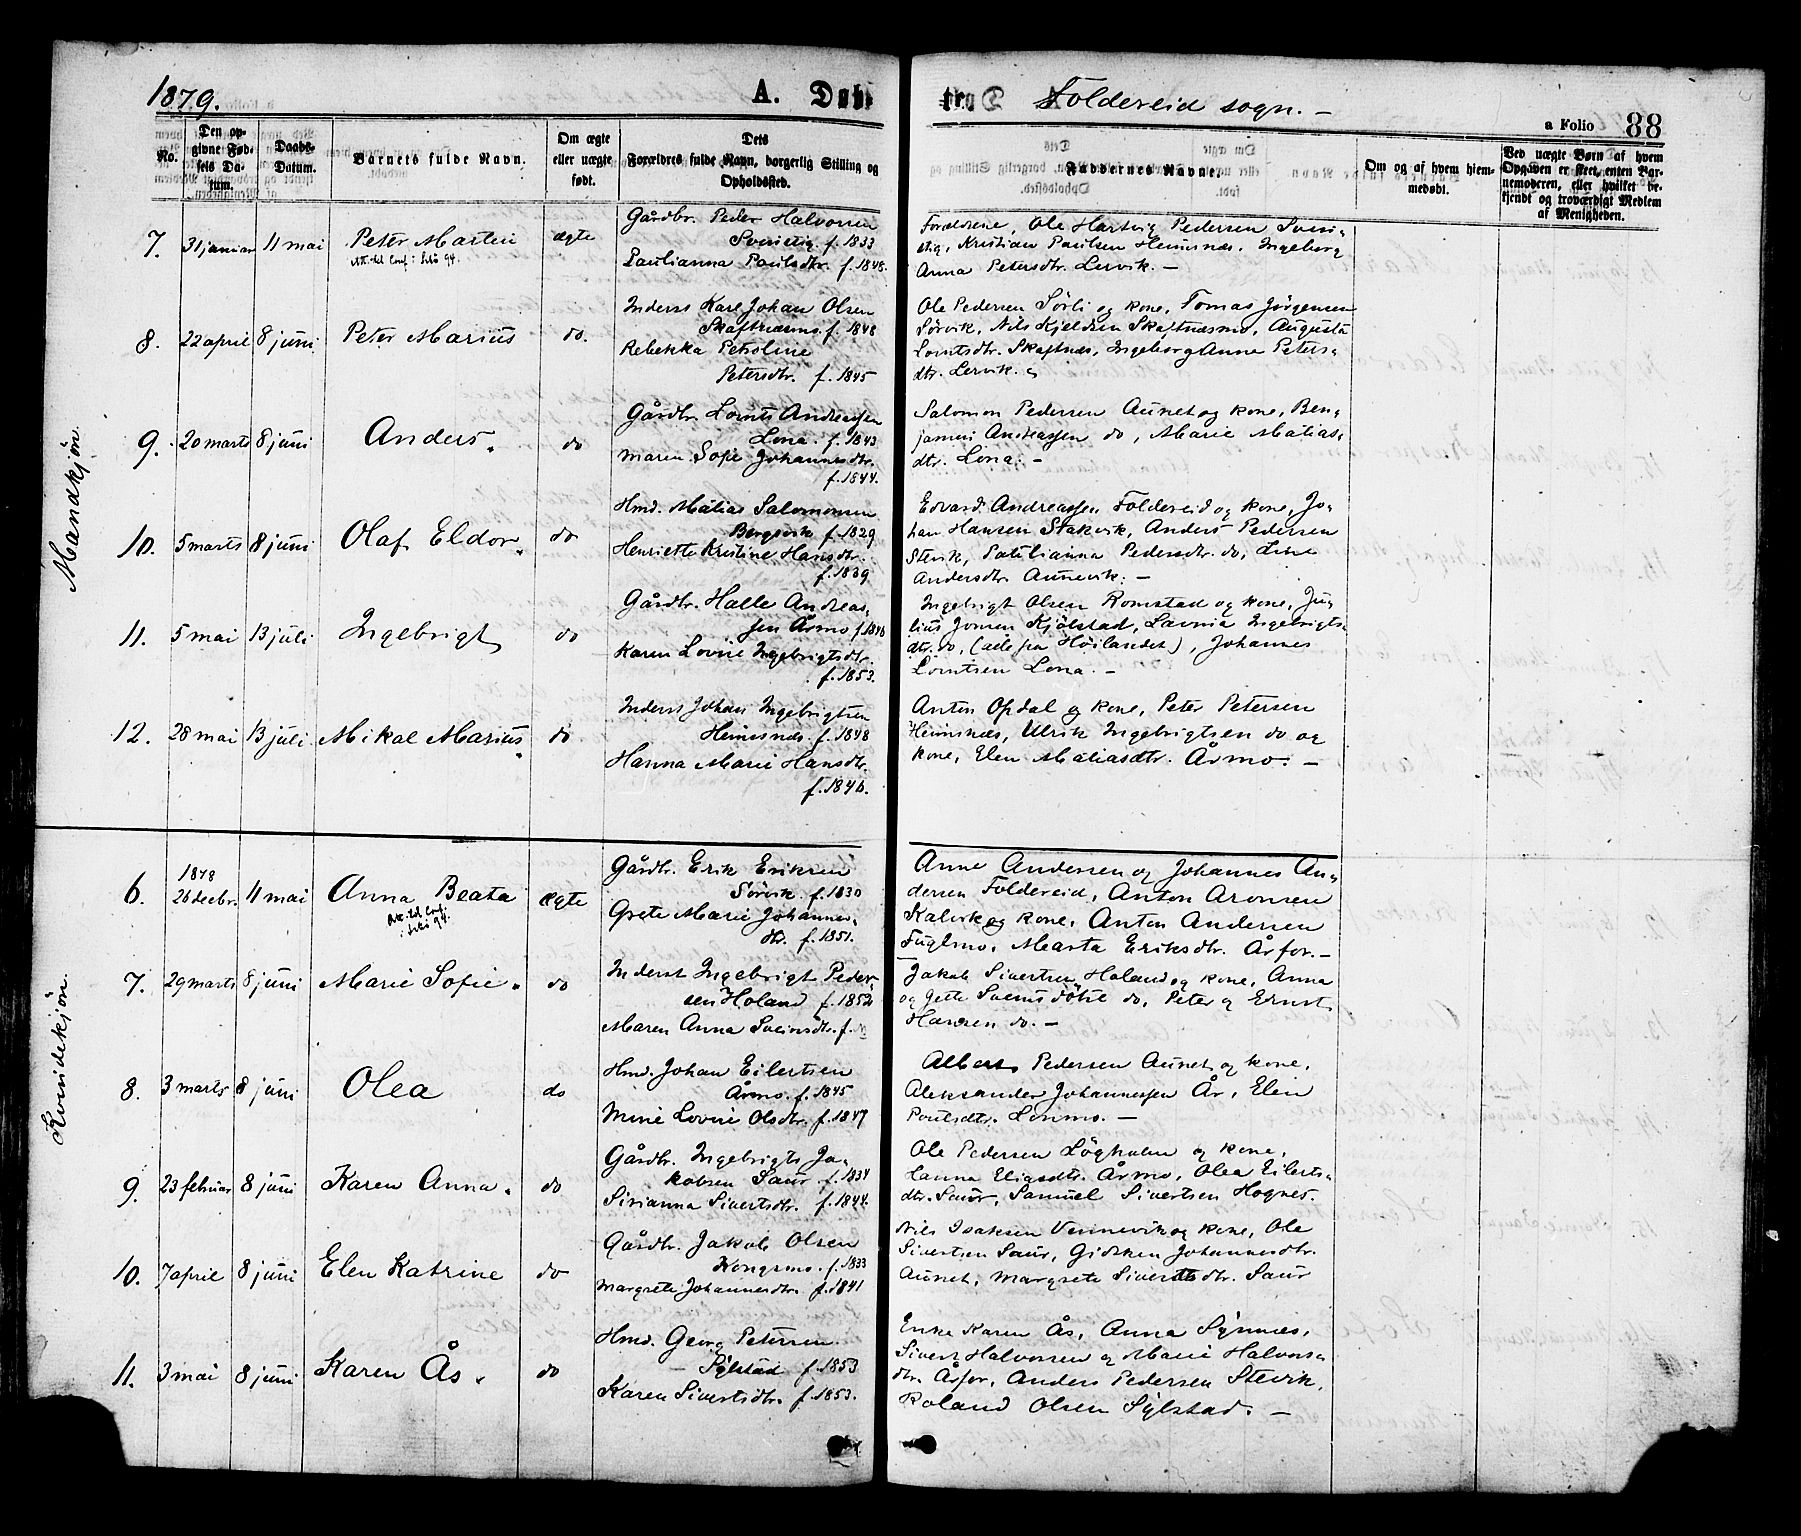 1879. A. Døbte Foldereid sogn. –
a Folio 88
No.
Den opgivne Fødsels Datum.
Daabs-Datum.
Barnets fulde Navn.
Om ægte eller uægte født.
Dets Forældres fulde Navn, borgerlig Stilling og Opholdssted.
Faddernes Navne.
Om og af hvem hjemmedøbt.
Ved uægte Børn af hvem Opgaven er skeet, enten Barnemoderen, eller hvilket bekjendt og troværdigt Medlem af Menigheden.
Mandkjøn.
7. 31 januar 11 mai Peter Martin ægte
Gårdbr. Peder Halvorsen
f. 1833
Paulianna Paulsdtr. f. 1848.
Forældrene, Ole Hartvig Pedersen
Kristian Paulsen Heimsnæs, Ingeborg
Anna Petersdtr. Lervik. –
8. 22 april 8 juni Peter Marius do.
Inderst Karl Johan Olsen
Skaftnæsmo. f. 1848
Rebekka Petroline
Petersdtr. f. 1845
Ole Pedersen Sørli og kone, Tomas Jørgensen
Sørvik, Nils Kjeldsen Skaftnæsmo, Augusta
Lorntsdtr. Skaftnæs, Ingeborg Anne Peters-
dtr. Lervik.
9. 20 marts 8 juni Anders. do
Gårdbr. Lornts Andreassen
Lona. f. 1843
Maren Sofie Johannesdtr.
f. 1844.
Salomon Pedersen Aunet og kone, Ben-
jamin Andreassen do, Marie Matias-
dtr. Lona. –
10. 5 marts 8 juni Olaf Eldor. do
Hmd. Matias Salomonsen
Bergsvik f. 1829
Henriette Kristine Hansdtr.
f. 1839
Edvard Andreassen Foldereid og kone, Jo-
han Hansen Stakvik, Anders Pedersen
Stevik, Paulianna Pedersdtr. do, Line
Andersdtr. Aunevik. –
11. 5 mai 13 juli Ingebrigt do
Gårdbr. Halle Andreas-
sen Årmo f. 1846
Karen Lovise Ingebrigtsdtr.
f. 1853.
Ingebrigt Olsen Romstad og kone, Ju-
lius Jonsen Kjølstad, Lavina Ingebrigts-
dtr. do, (alle fra Høilandet), Johannes
Lorntsen Lona. –
12. 28 mai 13 juli Mikal Marius. do
Inderst Johan Ingebrigtsen
Heimsnæs. f. 1848
Hanna Marie Hansdtr.
f. 1846.
Anton Opdal og kone, Peter Petersen
Heimsnæs, Ulrik Ingebrigtsen do og
kone, Elen Matiasdtr. Årmo. –
Kvindekjøn.
6. 1878 26 decbr. 11 mai Anna Beata ægte
Gårdbr. Erik Eriksen
Sørvik. f. 1830
Grete Marie Johannes-
dtr. f. 1851.
Anne Andersen og Johannes An-
dersen Foldereid, Anton Aronsen
Kalvik og kone, Anton Andersen
Fuglmo, Marta Eriksdtr. Årfor. –
7. 29 marts 8 juni Marie Sofie. do
Inderst Ingebrigt Peder-
sen Holand f. 1852
Maren Anna Sveinsdtr. f. do
Jakob Sivertsen Holand og kone, Anna
og Jette Sveinsdøtre do, Peter og Ernst
Hansen do. –
8. 3 marts 8 juni Olea do
Hmd. Johan Eilertsen
Årmo. f. 1845
Mine Lovise Olsdtr. f. 1847
Albert Pedersen Aunet og kone,
Aleksander Johannessen År, Elen
Paulsdtr. Lonmo. –
9. 23 februar 8 juni Karen Anna. do
Gårdbr. Ingebrigt Ja-
kobsen Saur f. 1834
Sirianna Sivertsdtr. f. 1844.
Ole Pedersen Løgholm og kone,
Hanna Eliasdtr. Årmo, Olea Eilerts-
dtr. Saur, Samuel Sivertsen Hognes.
10. 7 april 8 juni Elen Katrine do
Gårdbr. Jakob Olsen
Kongsmo. f. 1833
Margrete Johannesdtr. f. 1841
Nils Isaksen Vennevik og kone, Ole
Sivertsen Saur, Gidsken Johannesdtr.
Aunet, Margrete Sivertsdtr. Saur
11. 3 mai 8 juni Karen Ås. do
Hmd. Georg Petersen
– Sylstad f. 1853
Karen Sivertsdtr. f. 1853.
Enke Karen Ås, Anna Synnæs,
Sivert Halvorsen og Marie Halvors-
dtr. Årfor, Anders Pedersen Stevik,
Roland Olsen Sylstad. –